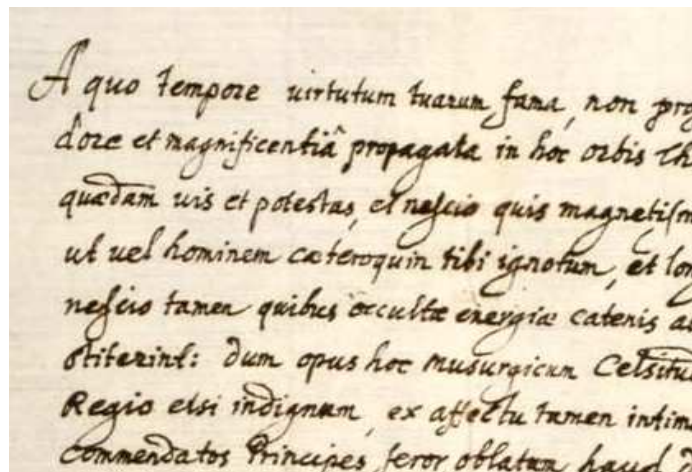 A quo tempore uirtutum tuarum fama, non
dore et magnificentiâ propagata in hoc orbis
quædam uis et potestas, et nescio quis magnetism
ut uel hominem cæteroquin tibi ignotum, et lon
nescio tamen quibus occultæ energiæ catenis a
stiterint: dum opus hoc musurgicum Celsitu
Regio etsi indignum, ex affectu tamen intim
commendatos Principes feror oblatum, haud